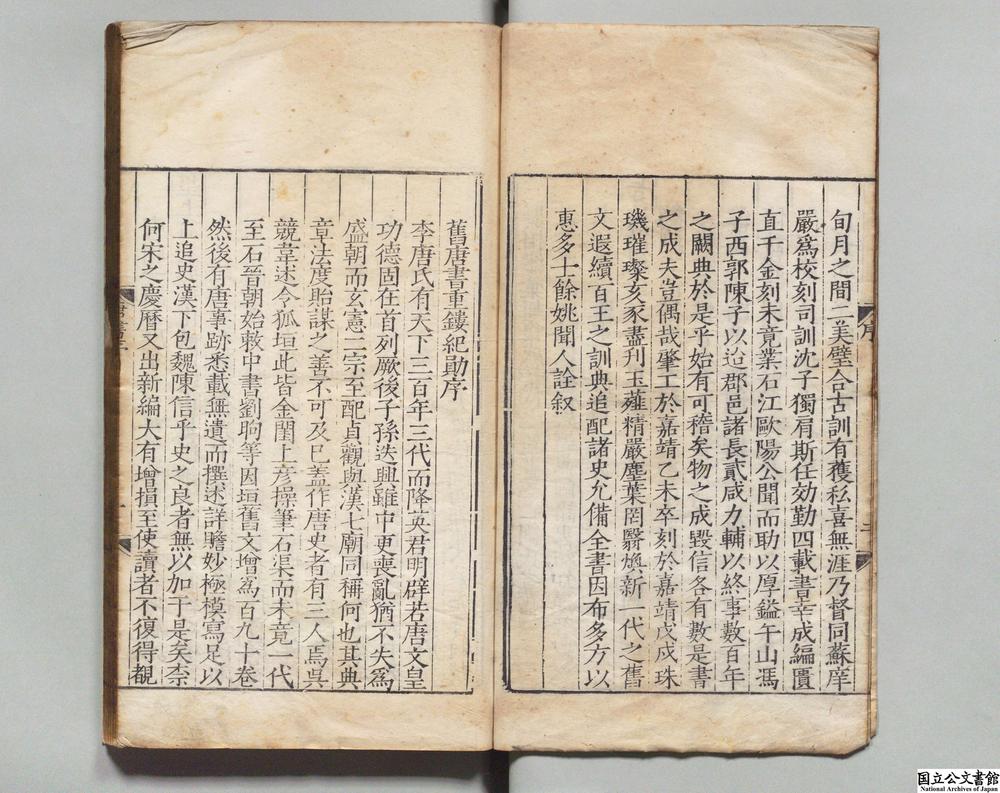 旬月之間二美璧合古訓有獲私喜無涯乃督同蘇庠
嚴爲校刻司訓沈子獨肩斯任効勤四載書幸成編匱
直千金刻未竟業石江歐陽公聞而助以厚鎰午山馮
子西郭陳子以迨郡邑諸長貳咸力輔以終事數百年
之闕典於是乎始有可稽矣物之成毀信各有數是書
之成夫豈偶哉肇工於嘉靖乙未卒刻於嘉靖戊戌珠
璣璀璨亥豕盡刋玉薤精嚴塵葉罔翳煥新一代之舊
文遐續百王之訓典追配諸史允備全書因布多方以
惠多士餘姚聞人詮叙
舊唐書重鏤紀勛序
李唐氏有天下三百年三代而降英君明辟若唐文皇
功德固在首列厥後子孫迭興雖中更喪亂猶不失爲
盛朝而玄憲二宗至配貞觀與漢七廟同稱何也其典
章法度貽謀之善不可及已蓋作唐史者有三人焉吳
競韋述令狐垣此皆金閨上彦操筆石渠而未竟一代
至石晉朝始敕中書劉昫等因垣舊文增爲百九十卷
然後有唐事跡悉載無遺而撰述詳贍妙極模寫足以
上追史漢下包魏陳信乎史之良者無以加于是矣柰
何宋之慶曆又出新編大有增損至使讀者不復得覩
序
二
一
国立公文書館
National Archives of Japan